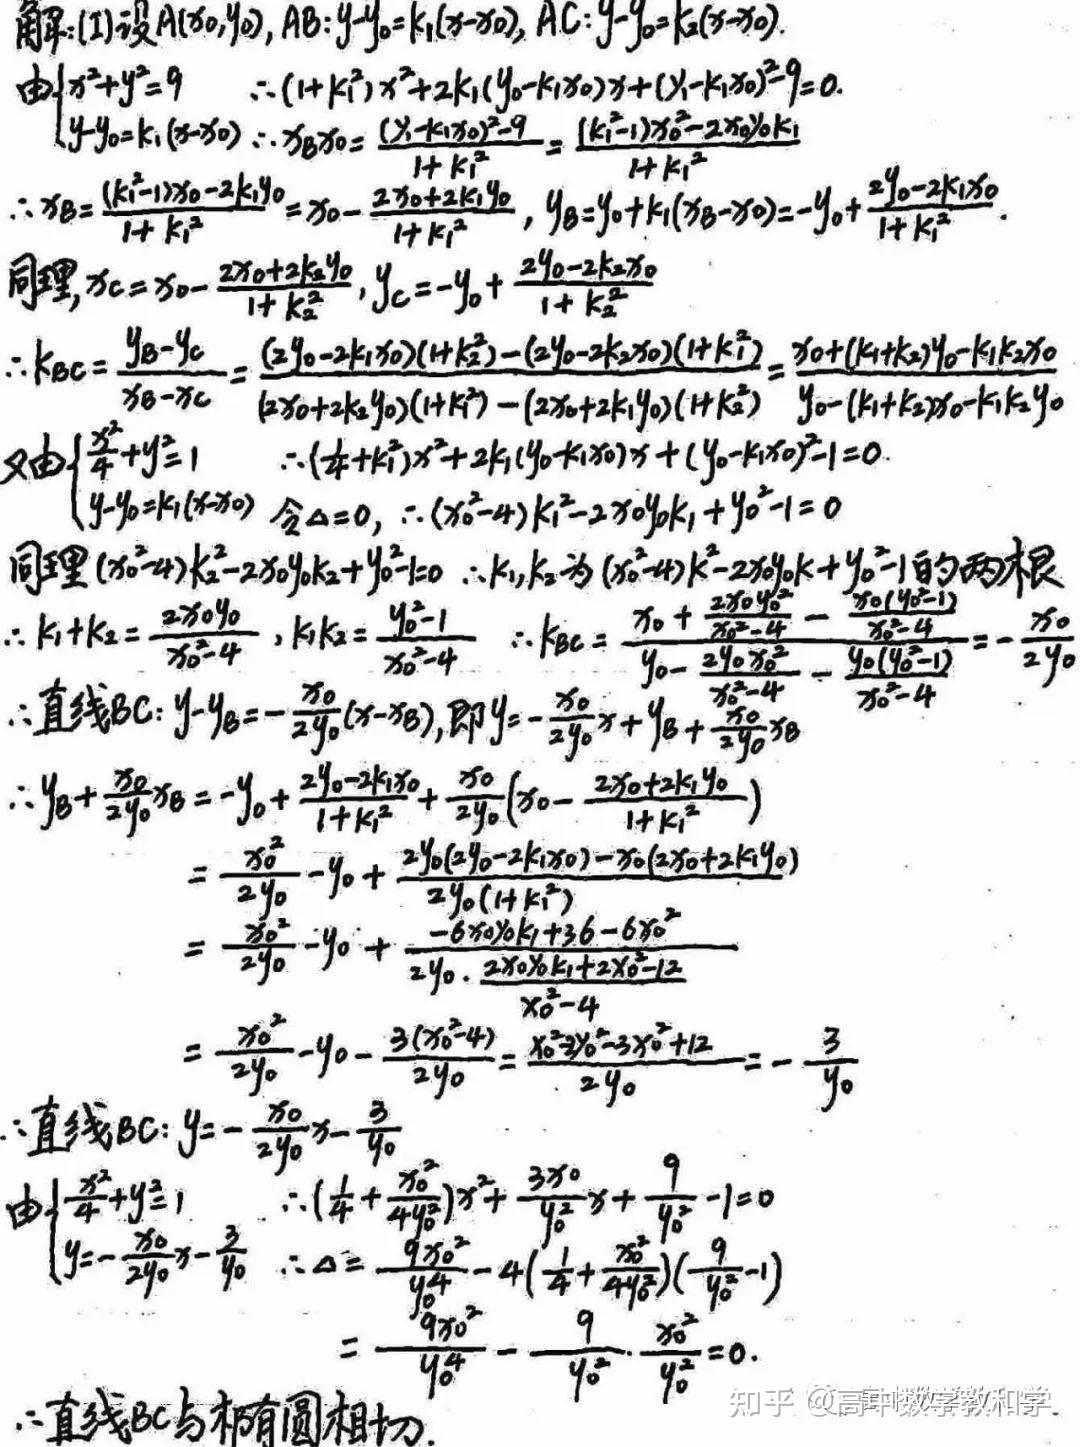 解:(I)设A(x₀,y₀), AB: y-y₀=k₁(x-x₀), AC: y-y₀=k₂(x-x₀).
由{x²+y²=9 ∴(1+k₁²)x²+2k₁(y₀-k₁x₀)x+(y₁-k₁x₀)²-9=0.
y-y₀=k₁(x-x₀) ∴x_Bx₀=\frac{(y₁-k₁x₀)²-9}{1+k₁²}=\frac{(k₁²-1)x₀²-2x₀y₀k₁}{1+k₁²}
∴x_B=\frac{(k₁²-1)x₀-2k₁y₀}{1+k₁²}=x₀-\frac{2x₀+2k₁y₀}{1+k₁²}, y_B=y₀+k₁(x_B-x₀)=-y₀+\frac{2y₀-2k₁x₀}{1+k₁²}.
同理,x_C=x₀-\frac{2x₀+2k₂y₀}{1+k₂²}, y_C=-y₀+\frac{2y₀-2k₂x₀}{1+k₂²}
∴k_{BC}=\frac{y_B-y_C}{x_B-x_C}=\frac{(2y₀-2k₁x₀)(1+k₂²)-(2y₀-2k₂x₀)(1+k₁²)}{(2x₀+2k₂y₀)(1+k₁²)-(2x₀+2k₁y₀)(1+k₂²)}=\frac{x₀+(k₁+k₂)y₀-k₁k₂x₀}{y₀-(k₁+k₂)x₀-k₁k₂y₀}
又由{\frac{x²}{4}+y²=1 ∴(\frac{1}{4}+k₁²)x²+2k₁(y₀-k₁x₀)x+(y₀-k₁x₀)²-1=0
y-y₀=k₁(x-x₀) 令△=0, ∴(x₀²-4)k₁²-2x₀y₀k₁+y₀²-1=0
同理(x₀²-4)k₂²-2x₀y₀k₂+y₀²-1=0 ∴k₁,k₂为(x₀²-4)k²-2x₀y₀k+y₀²-1的两根
∴k₁+k₂=\frac{2x₀y₀}{x₀²-4}, k₁k₂=\frac{y₀²-1}{x₀²-4} ∴k_{BC}=\frac{x₀+\frac{2x₀y₀²}{x₀²-4}-\frac{x₀(y₀²-1)}{x₀²-4}}{y₀-\frac{2y₀x₀²}{x₀²-4}-\frac{y₀(y₀²-1)}{x₀²-4}}=-\frac{x₀}{2y₀}
∴直线BC: y-y_B=-\frac{x₀}{2y₀}(x-x_B),即y=-\frac{x₀}{2y₀}x+y_B+\frac{x₀}{2y₀}x_B
∴y_B+\frac{x₀}{2y₀}x_B=-y₀+\frac{2y₀-2k₁x₀}{1+k₁²}+\frac{x₀}{2y₀}(x₀-\frac{2x₀+2k₁y₀}{1+k₁²})
=\frac{x₀²}{2y₀}-y₀+\frac{2y₀(2y₀-2k₁x₀)-x₀(2x₀+2k₁y₀)}{2y₀(1+k₁²)}
=\frac{x₀²}{2y₀}-y₀+\frac{-6x₀y₀k₁+36-6x₀²}{2y₀·\frac{2x₀y₀k₁+2x₀²-12}{x₀²-4}}
=\frac{x₀²}{2y₀}-y₀-\frac{3(x₀²-4)}{2y₀}=\frac{x₀²-2y₀²-3x₀²+12}{2y₀}=-\frac{3}{y₀}
∴直线BC: y=-\frac{x₀}{2y₀}x-\frac{3}{y₀}
由{\frac{x²}{4}+y²=1 ∴(\frac{1}{4}+\frac{x₀²}{4y₀²})x²+\frac{3x₀}{y₀²}x+\frac{9}{y₀²}-1=0
y=-\frac{x₀}{2y₀}x-\frac{3}{y₀} ∴△=\frac{9x₀²}{y₀⁴}-4(\frac{1}{4}+\frac{x₀²}{4y₀²})(\frac{9}{y₀²}-1)
=\frac{9x₀²}{y₀⁴}-\frac{9}{y₀²}·\frac{x₀²}{y₀²}=0.
∴直线BC与椭圆相切.
知乎 @高中数学教和学